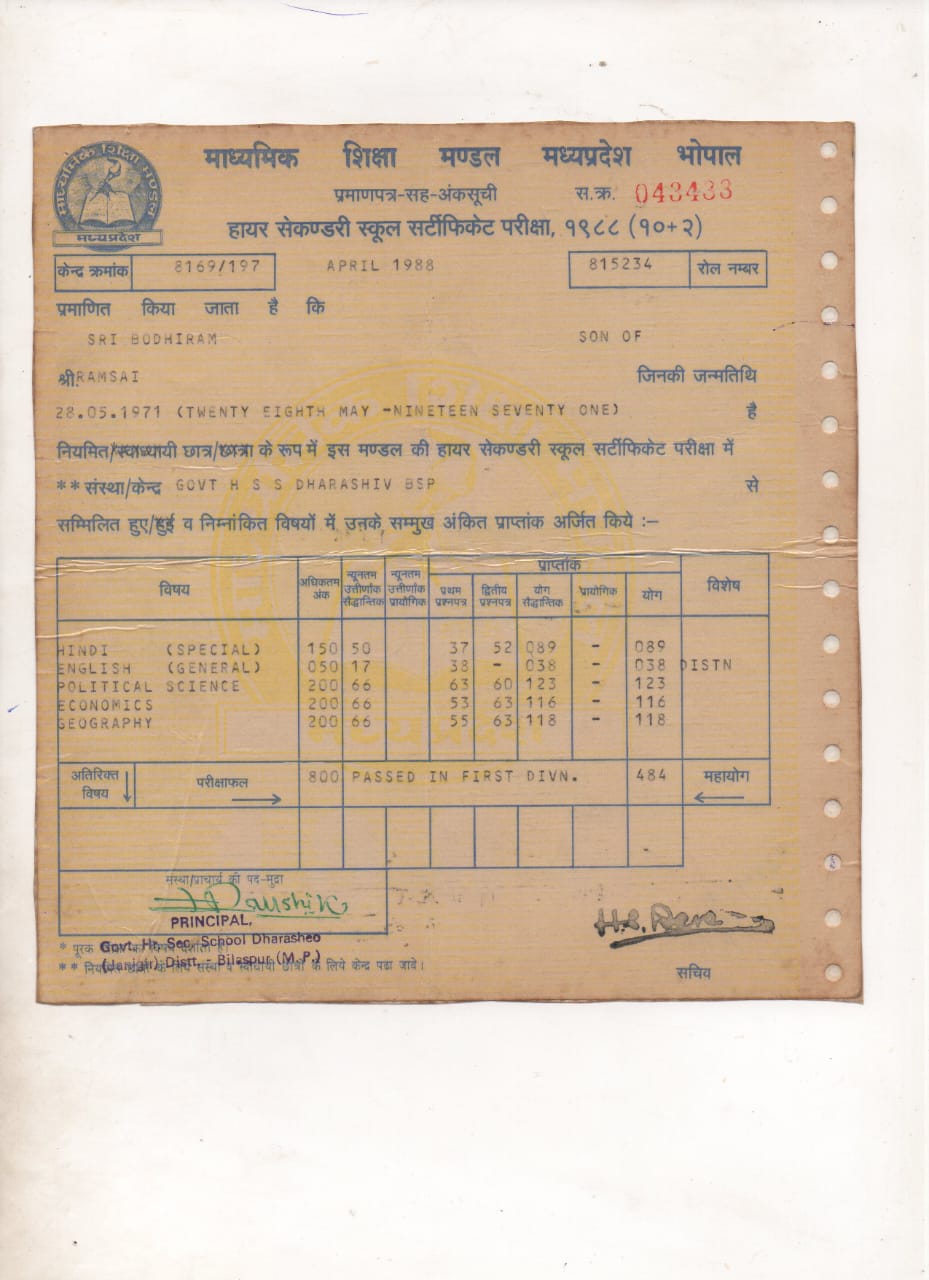 माध्यमिक शिक्षा मण्डल मध्यप्रदेश भोपाल
प्रमाणपत्र-सह-अंकसूची स.क्र. 043433
हायर सेकण्डरी स्कूल सर्टीफिकेट परीक्षा, १९८८ (१०+२)
माध्यमिक शिक्षा मण्डल
मध्यप्रदेश
केन्द्र क्रमांक 8169/197 APRIL 1988 815234 रोल नम्बर
प्रमाणित किया जाता है कि
SRI BODHIRAM SON OF
श्री RAMSAI जिनकी जन्मतिथि
28.05.1971 (TWENTY EIGHTH MAY -NINETEEN SEVENTY ONE) है
नियमित/स्वाध्यायी छात्र/छात्रा के रूप में इस मण्डल की हायर सेकण्डरी स्कूल सर्टीफिकेट परीक्षा में
** संस्था/केन्द्र GOVT H S S DHARASHIV BSP से
सम्मिलित हुए/हुई व निम्नांकित विषयों में, उनके सम्मुख अंकित प्राप्तांक अर्जित किये :-
विषय अधिकतम अंक न्यूनतम उत्तीर्णांक सैद्धान्तिक न्यूनतम उत्तीर्णांक प्रायोगिक प्राप्तांक विशेष
प्रथम प्रश्नपत्र द्वितीय प्रश्नपत्र योग सैद्धान्तिक प्रायोगिक योग
HINDI (SPECIAL) 150 50 37 52 089 - 089
ENGLISH (GENERAL) 050 17 38 - 038 - 038 DISTN
POLITICAL SCIENCE 200 66 63 60 123 - 123
ECONOMICS 200 66 53 63 116 - 116
GEOGRAPHY 200 66 55 63 118 - 118
अतिरिक्त विषय परीक्षाफल 800 PASSED IN FIRST DIVN. 484 महायोग
संस्था/प्राचार्य की पद-मुद्रा
PRINCIPAL,
Govt. Hr. Sec. School Dharasheo
(Janjgir) Distt. - Bilaspur (M.P.)
* पूरक
** के लिये संस्था व स्वाध्यायी छात्रों के लिये केन्द्र पढा जावे।
सचिव